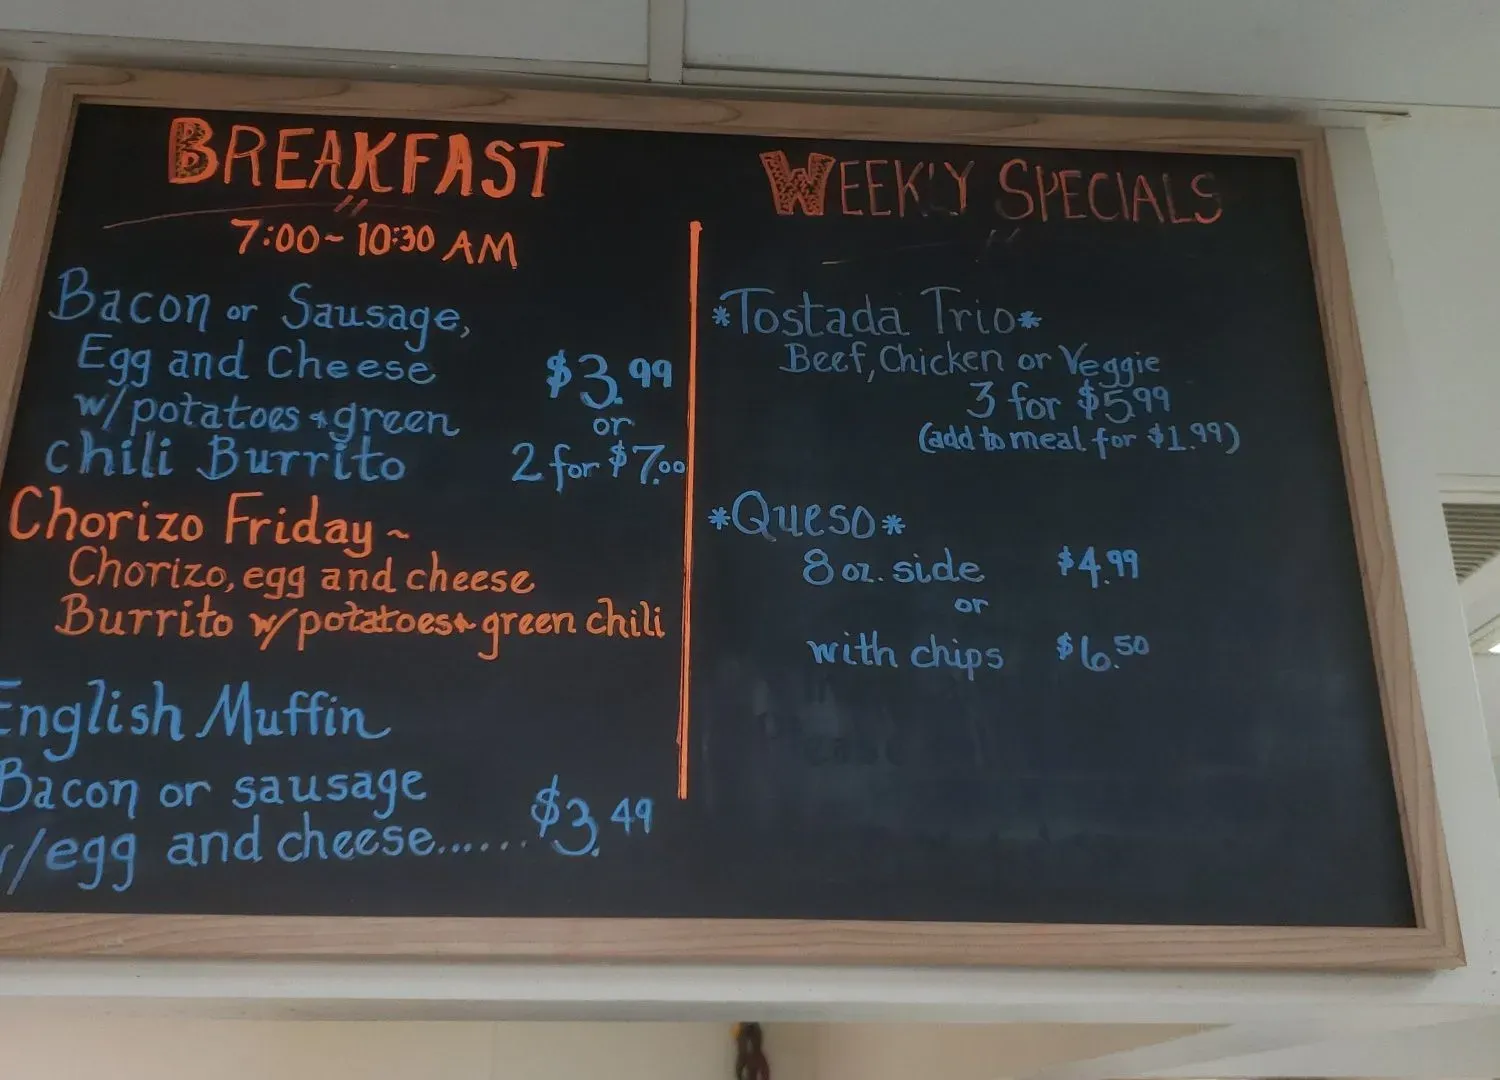 BREAKFAST
7:00~10:30 AM
Bacon or Sausage,
Egg and Cheese
w/potatoes + green
chili Burrito
$3.99
or
2 for $7.00
Chorizo Friday ~
Chorizo, egg and cheese
Burrito w/potatoes + green chili
English Muffin
Bacon or sausage
w/egg and cheese...... $3.49
WEEKLY SPECIALS
*Tostada Trio*
Beef, Chicken or Veggie
3 for $5.99
(add to meal for $1.99)
*Queso*
8 oz. side $4.99
or
with chips $6.50